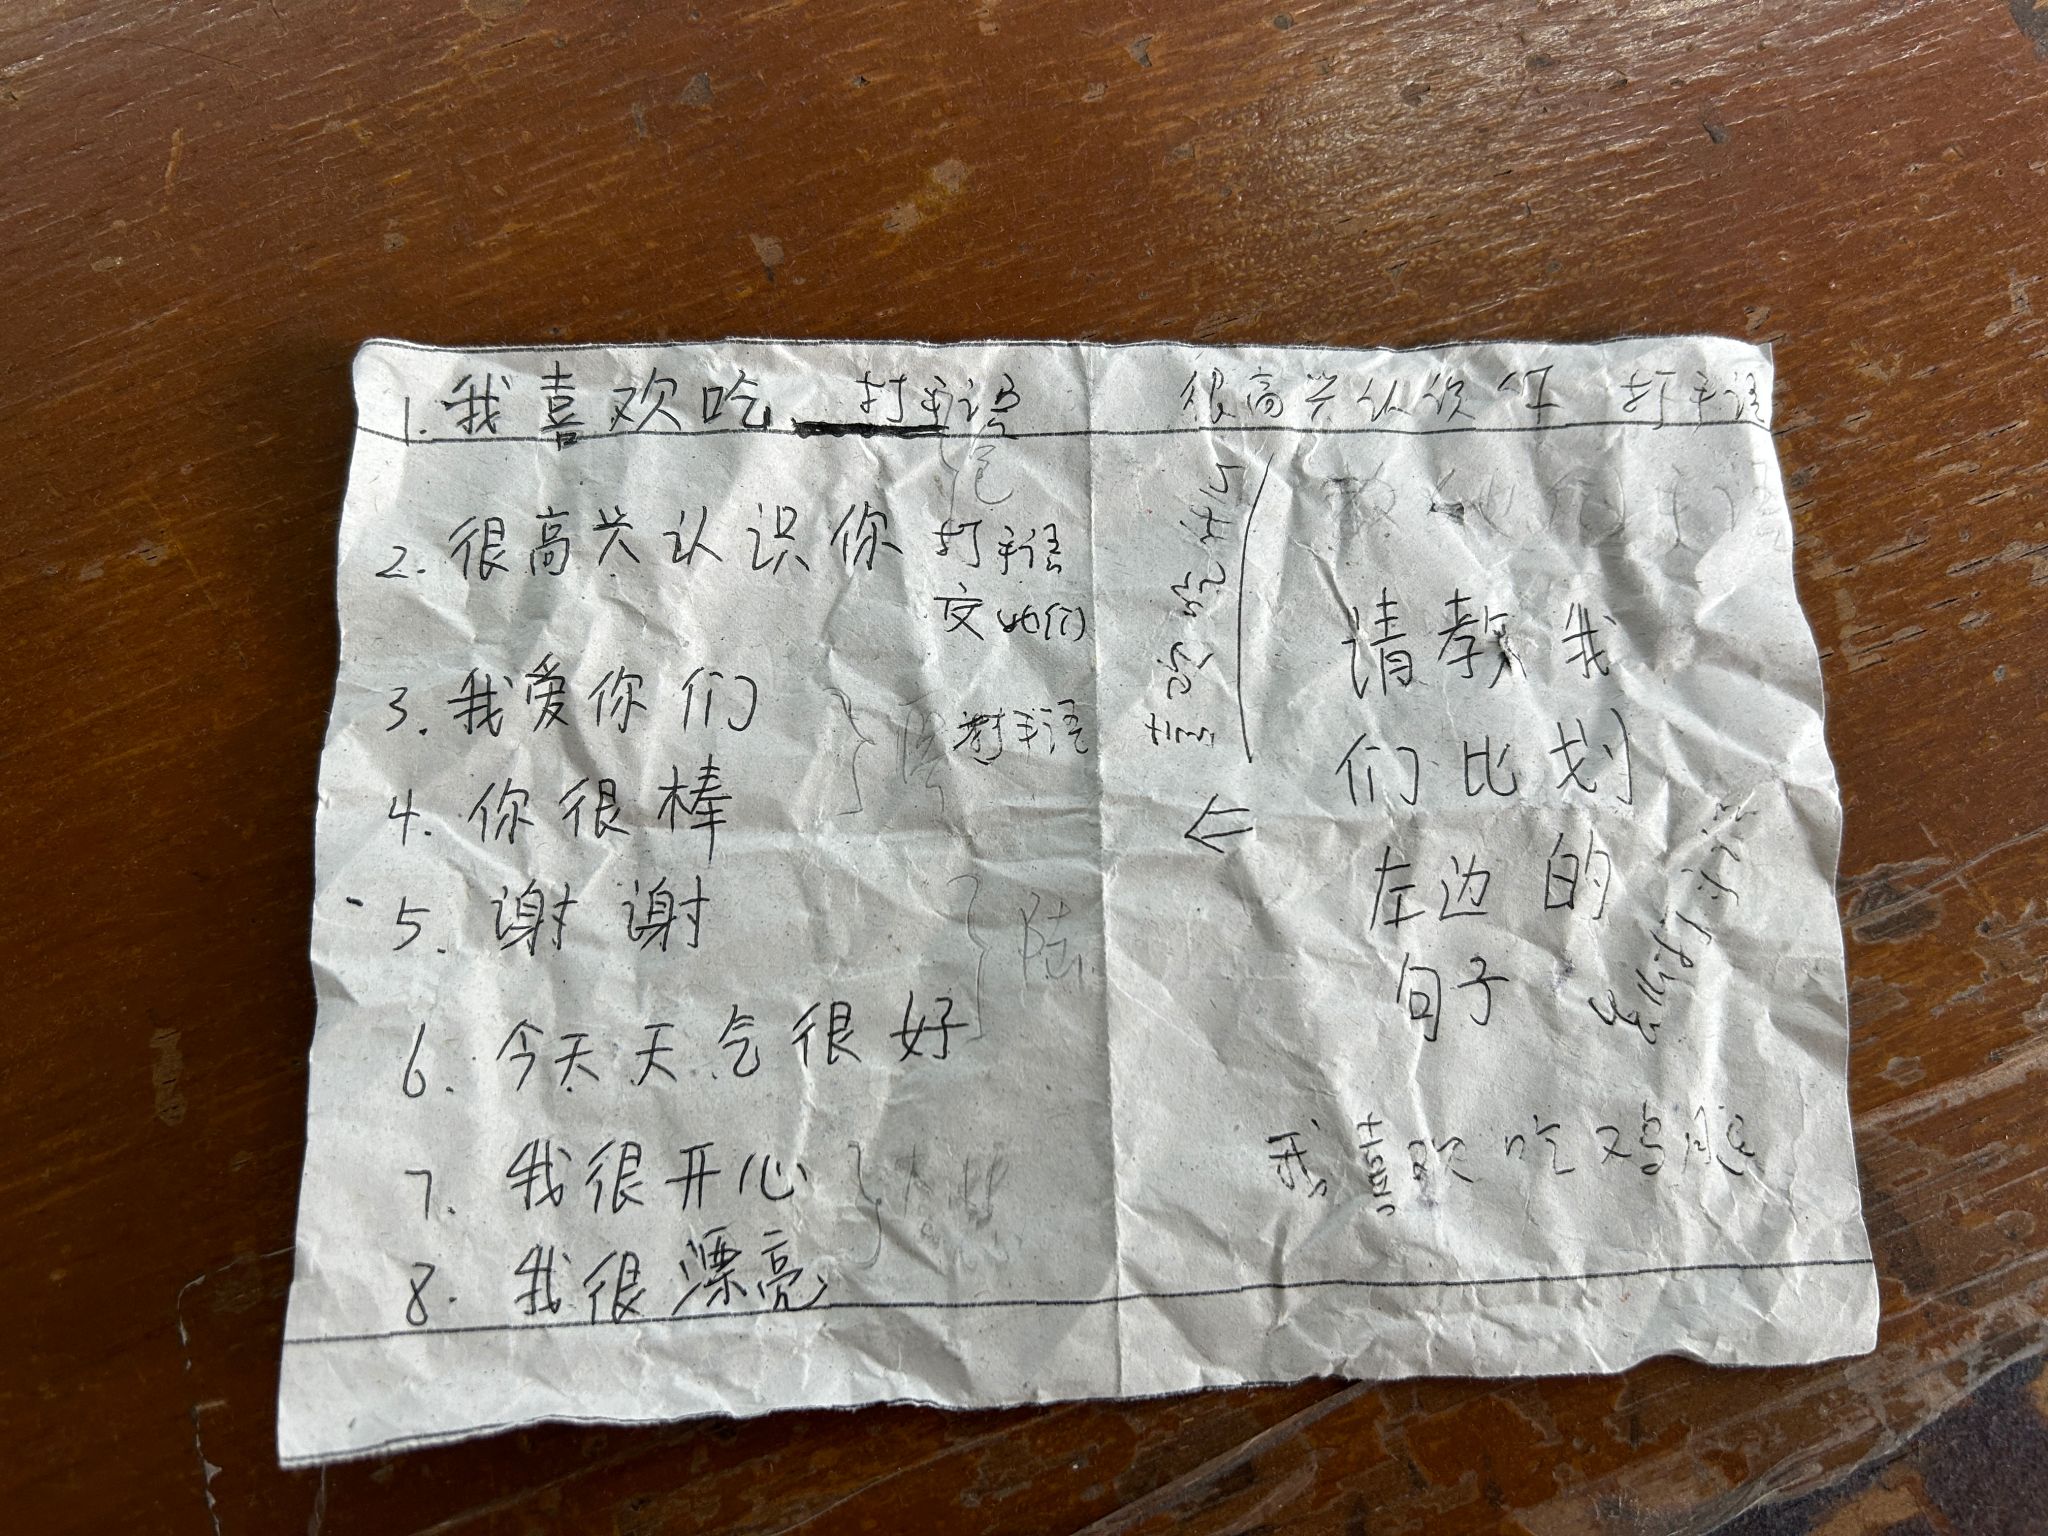 1. 我喜欢吃___打手语
2. 很高兴认识你 打手语
3. 我爱你们 打手语
4. 你很棒
5. 谢谢
6. 今天天气很好
陆
7. 我很开心
8. 我很漂亮
很高兴认识你 打手语
请教我
们比划
左边的
句子
我喜欢吃鸡腿